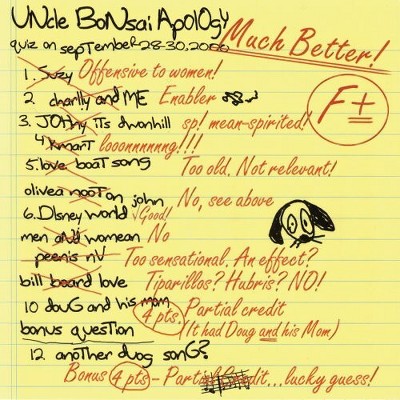 UNcle BoNsai ApolOgy
Much Better!
quiz on sepTember 28-30, 2006
1. Suzy Offensive to women!
F±
2 charlly and ME Enabler
3. JOHny ITs dwonhill sp! mean-spirited!
4 Kmart looonnnnnng!!!
5. love boat song Too old. Not relevant!
olivea nooTon john No, see above
6. DIsney world √Good!
men and womean No
peenis nV Too sensational. An effect?
bill board love Tiparillos? Hubris? NO!
10 douG and his mom 4 pts. Partial credit
bonus question (It had Doug and his Mom)
12 another dog sonG?
Bonus 4 pts - Partial Credit...lucky guess!